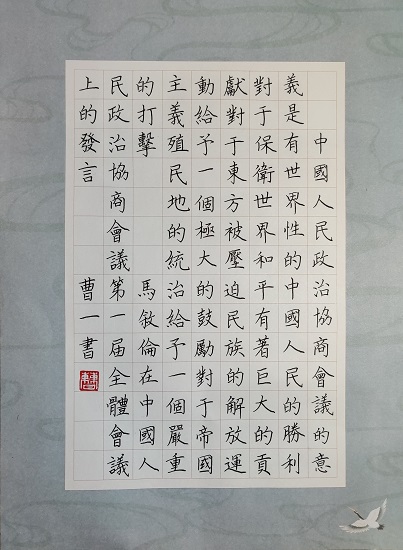 中國人民政治協商會議的意
義是有世界性的中國人民的勝利
對于保衛世界和平有著巨大的貢
獻對于東方被壓迫民族的解放運
動給予一個極大的鼓勵對于帝國
主義殖民地的統治給予一個嚴重
的打擊 馬敘倫在中國人
民政治協商會議第一届全體會議
上的發言 曹一書